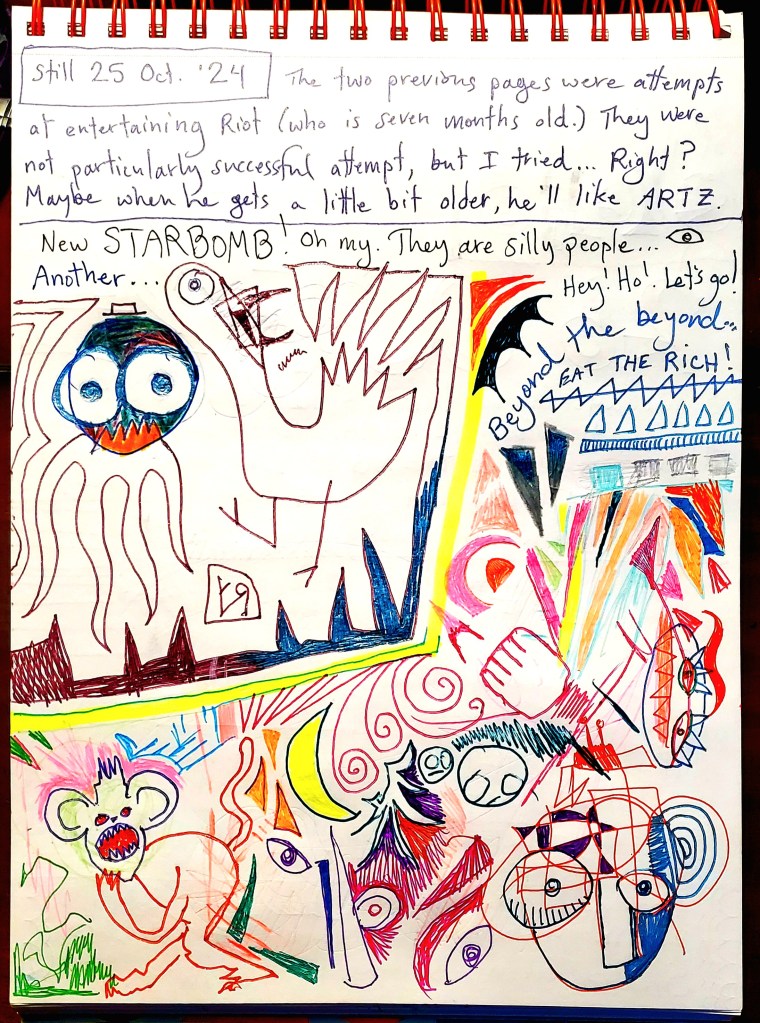 still 25 Oct. '24
The two previous pages were attempts
at entertaining Riot (who is seven months old.) They were
not particularly successful attempt, but I tried... Right?
Maybe when he gets a little bit older, he'll like ARTZ.
New STARBOMB! Oh my. They are silly people...
Another...
Hey! Ho! Let's go!
Beyond the beyond...
EAT THE RICH!